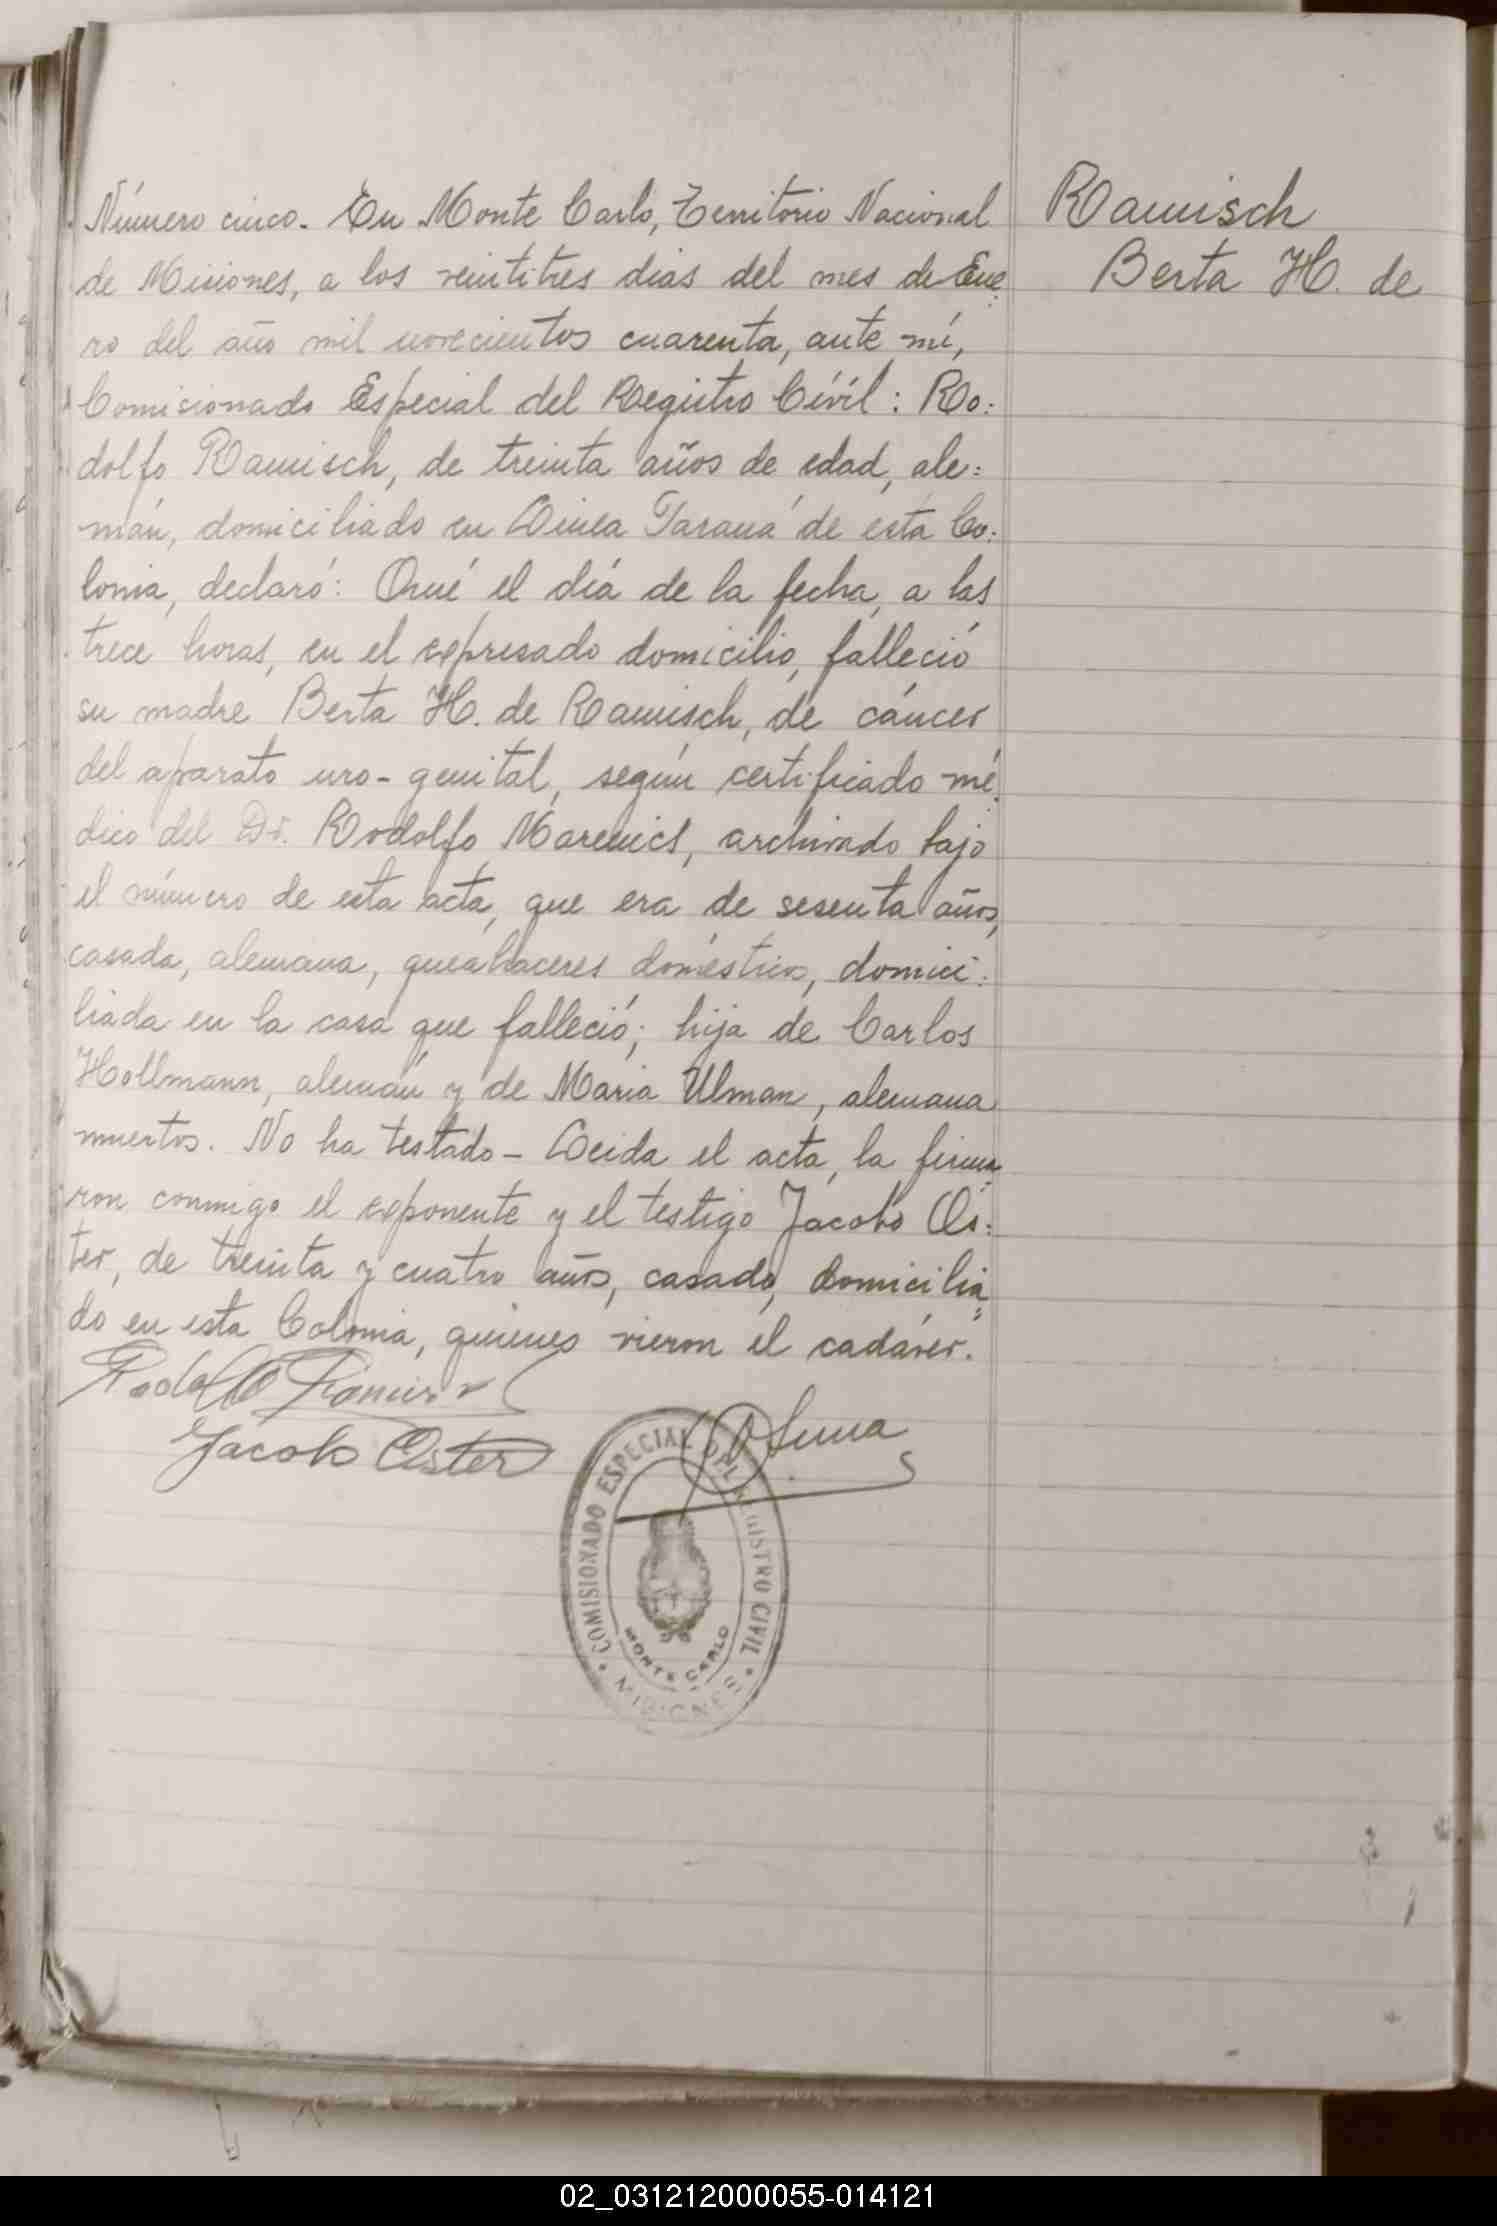 Número cinco. En Monte Carlo, Territorio Nacional
de Misiones, a los veintitres dias del mes de Ene
ro del año mil novecientos cuarenta, ante mí,
Comisionado Especial del Registro Cívíl: Ro:
dolfo Ramisch, de treinta años de edad, ale:
mán, domiciliado en Linea Paraná de esta Co:
lonia, declaró: Qué el día de la fecha, a las
trece horas, en el expresado domicilio, falleció
su madre Berta H. de Ramisch, de cáncer
del aparato uro-genital, según certificado mé
dico del Dr. Rodolfo archivado bajo
el número de esta acta, que era de sesenta años,
casada, alemana, queahaceres domésticos, domici:
liada en la casa que falleció; hija de Carlos
Hollmann, alemán y de Maria Ulman, alemana
muertos. No ha testado - Leida el acta, la firma
ron conmigo el exponente y el testigo Jacobo Os:
ter, de treinta y cuatro años, casado, domicilia
do en esta Colonia, quienes vieron el cadáver.
Rodolfo Ramisch
Jacob Oster
Ramisch
Berta H. de
COMISIONADO ESPECIAL DEL REGISTRO CIVIL
MONTE CARLO
MISIONES
02_031212000055-014121